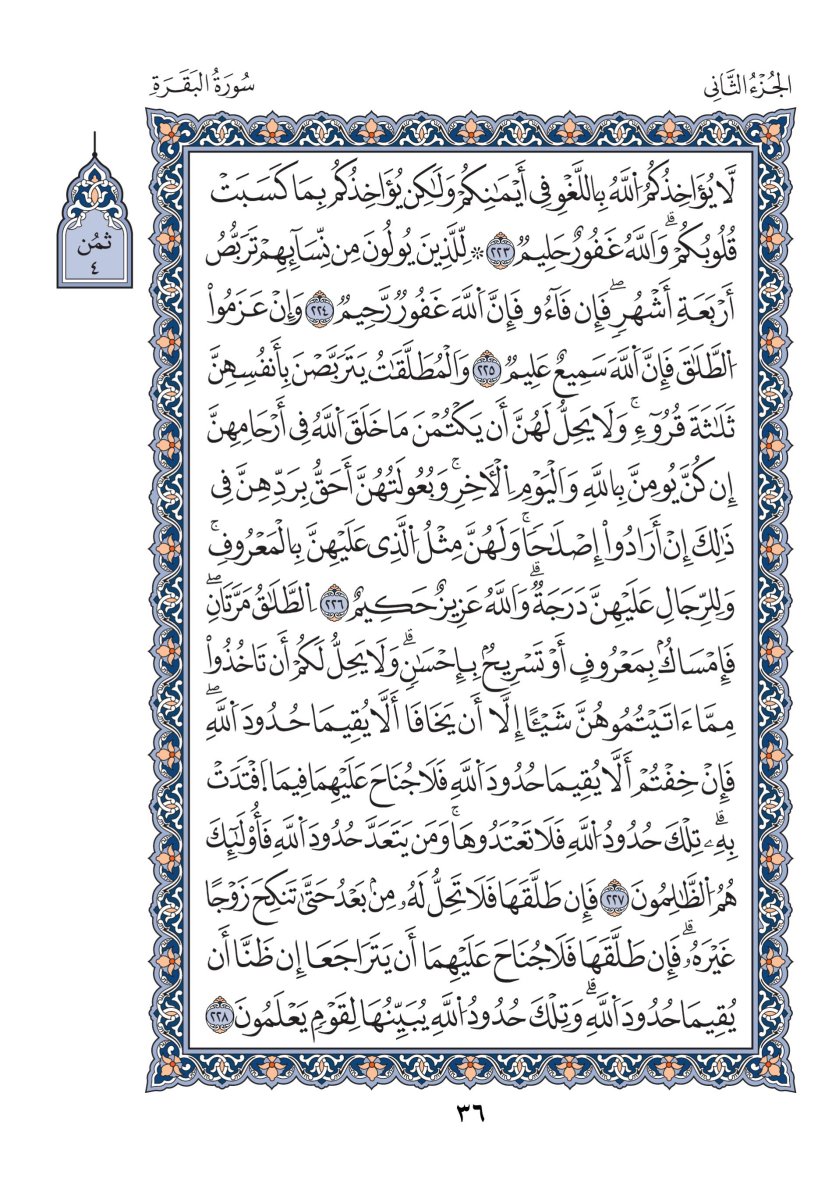 الجُزْءُ الثَّانِي
سُورَةُ البَقَرَةِ
ثُمُن
٤
لَّا يُوَ۬اخِذُكُمُ اُ۬للَّهُ بِاللَّغْوِ فِي أَيْمَٰنِكُمْ وَلَٰكِن يُوَ۬اخِذُكُم بِمَا كَسَبَتْ
قُلُوبُكُمْۗ وَاللَّهُ غَفُورٌ حَلِيمٌ ٢٢٣ ۞ لِّلَّذِينَ يُولُونَ مِن نِّسَآئِهِمْ تَرَبُّصُ
أَرْبَعَةِ أَشْهُرٖۖ فَإِن فَآءُو فَإِنَّ اَ۬للَّهَ غَفُورٌ رَّحِيمٌ ٢٢٤ وَإِنْ عَزَمُواْ
اُ۬لطَّلَٰقَ فَإِنَّ اَ۬للَّهَ سَمِيعٌ عَلِيمٌ ٢٢٥ وَالْمُطَلَّقَٰتُ يَتَرَبَّصْنَ بِأَنفُسِهِنَّ
ثَلَٰثَةَ قُرُوٓءٖۚ وَلَا يَحِلُّ لَهُنَّ أَن يَكْتُمْنَ مَا خَلَقَ اَ۬للَّهُ فِي أَرْحَامِهِنَّ
إِن كُنَّ يُومِنَّ بِاللَّهِ وَالْيَوْمِ اِ۬لْأٓخِرِۚ وَبُعُولَتُهُنَّ أَحَقُّ بِرَدِّهِنَّ فِي
ذَٰلِكَ إِنْ أَرَادُواْ إِصْلَٰحاٗۚ وَلَهُنَّ مِثْلُ اُ۬لَّذِي عَلَيْهِنَّ بِالْمَعْرُوفِۚ
وَلِلرِّجَالِ عَلَيْهِنَّ دَرَجَةٞۗ وَاللَّهُ عَزِيزٌ حَكِيمٌ ٢٢٦ اِ۬لطَّلَٰقُ مَرَّتَٰنِۖ
فَإِمْسَاكُۢ بِمَعْرُوفٍ أَوْ تَسْرِيحُۢ بِإِحْسَٰنٖۗ وَلَا يَحِلُّ لَكُمْ أَن تَاخُذُواْ
مِمَّا ءَاتَيْتُمُوهُنَّ شَيْـًٔا إِلَّا أَن يَخَافَا أَلَّا يُقِيمَا حُدُودَ اَ۬للَّهِۖ
فَإِنْ خِفْتُمْ أَلَّا يُقِيمَا حُدُودَ اَ۬للَّهِ فَلَا جُنَاحَ عَلَيْهِمَا فِيمَا اَ۪فْتَدَتْ
بِهِۦۗ تِلْكَ حُدُودُ اُ۬للَّهِ فَلَا تَعْتَدُوهَاۚ وَمَن يَتَعَدَّ حُدُودَ اَ۬للَّهِ فَأُوْلَٰٓئِكَ
هُمُ اُ۬لظَّٰلِمُونَ ٢٢٧ فَإِن طَلَّقَهَا فَلَا تَحِلُّ لَهُۥ مِنۢ بَعْدُ حَتَّىٰ تَنكِحَ زَوْجاً
غَيْرَهُۥۗ فَإِن طَلَّقَهَا فَلَا جُنَاحَ عَلَيْهِمَا أَن يَتَرَاجَعَا إِن ظَنَّا أَن
يُقِيمَا حُدُودَ اَ۬للَّهِۗ وَتِلْكَ حُدُودُ اُ۬للَّهِ يُبَيِّنُهَا لِقَوْمٖ يَعْلَمُونَ ٢٢٨
٣٦